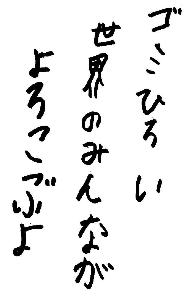 ゴミひろい
世界のみんなが
よろこぶよ